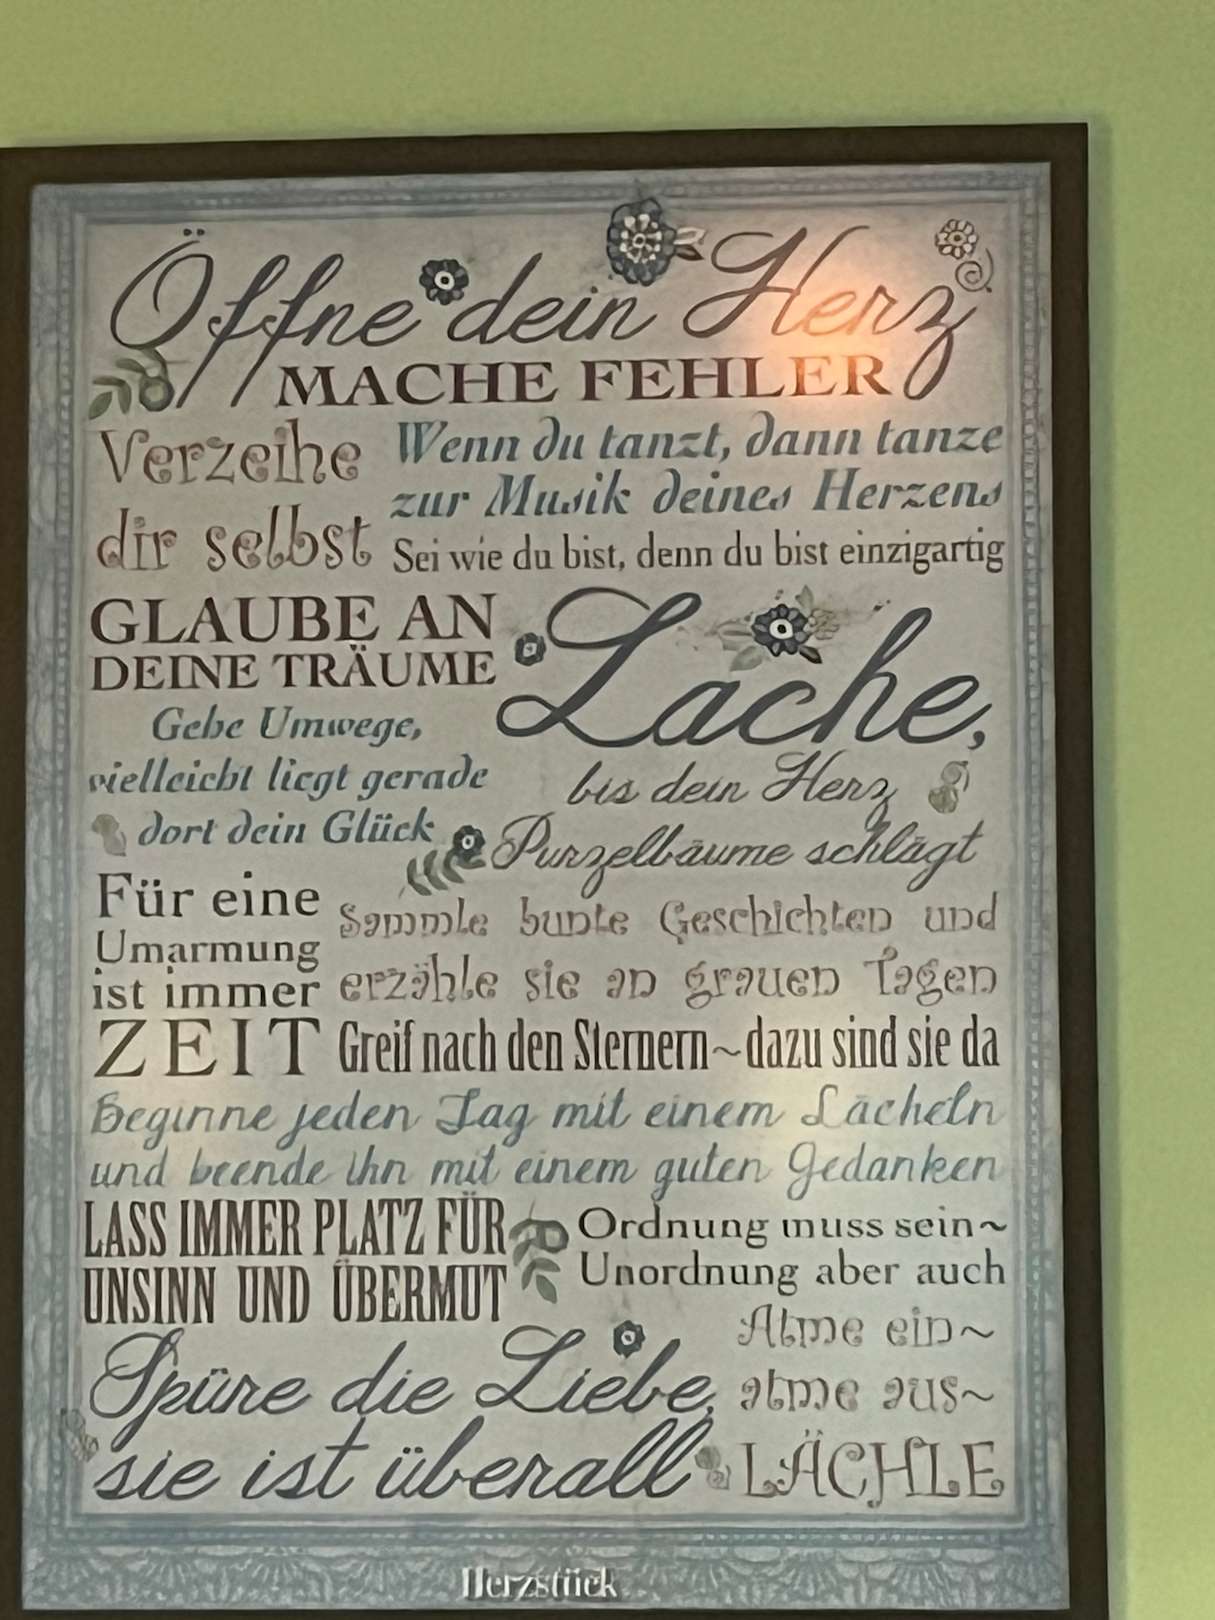 Öffne dein Herz
MACHE FEHLER
Verzeihe
dir selbst
Wenn du tanzt, dann tanze
zur Musik deines Herzens
Sei wie du bist, denn du bist einzigartig
GLAUBE AN
DEINE TRÄUME
Lache,
bis dein Herz
Purzelbäume schlägt
Gehe Umwege,
vielleicht liegt gerade
dort dein Glück
Für eine
Umarmung
ist immer
ZEIT
Sammle bunte Geschichten und
erzähle sie an grauen Tagen
Greif nach den Sternern~dazu sind sie da
Beginne jeden Tag mit einem Lächeln
und beende ihn mit einem guten Gedanken
LASS IMMER PLATZ FÜR
UNSINN UND ÜBERMUT
Ordnung muss sein~
Unordnung aber auch
Spüre die Liebe,
sie ist überall
Atme ein~
atme aus~
LÄCHLE
Herzstück